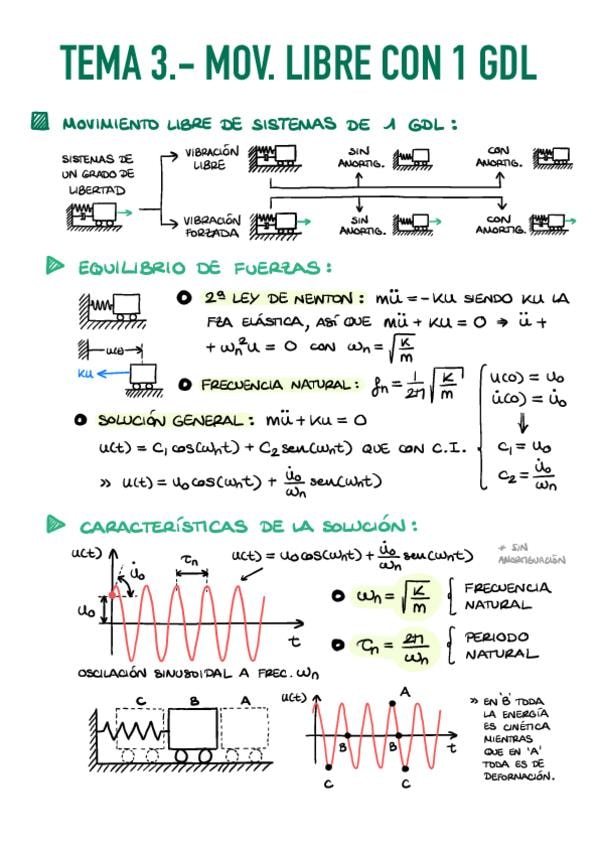 TEMA 3.- MOV. LIBRE CON 1 GDL
MOVIMIENTO LIBRE DE SISTEMAS DE 1 GDL:
SISTEMAS DE
UN GRADO DE
LIBERTAD
VIBRACIÓN
LIBRE
SIN
AMORTIG.
CON
AMORTIG.
VIBRACIÓN
FORZADA
SIN
AMORTIG.
CON
AMORTIG.
EQUILIBRIO DE FUERZAS:
u(t)
Ku
2ª LEY DE NEWTON: mü = -Ku SIENDO KU LA
FZA ELÁSTICA, ASÍ QUE mü + Ku = 0 → ü +
+ ωn²u = 0 CON ωn = √(K/m)
FRECUENCIA NATURAL: fn = 1/2π √(K/m)
SOLUCIÓN GENERAL: mü + Ku = 0
u(t) = C₁ cos(ωnt) + C₂ sen(ωnt) QUE CON C.I.
» u(t) = u₀ cos(ωnt) + u̇₀/ωn sen(ωnt)
u(0) = u₀
u̇(0) = u̇₀
⇓
C₁ = u₀
C₂ = u̇₀/ωn
CARACTERÍSTICAS DE LA SOLUCIÓN:
u(t)
u̇₀
τn
u₀
t
u(t) = u₀ cos(ωnt) + u̇₀/ωn sen(ωnt)
* SIN
AMORTIGUACIÓN
ωn = √(K/m) { FRECUENCIA
NATURAL
τn = 2π/ωn { PERIODO
NATURAL
OSCILACIÓN SINUSOIDAL A FREC. ωn
C B A
u(t)
A
B B
t
C C
» EN 'B' TODA
LA ENERGÍA
ES CINÉTICA
MIENTRAS
QUE EN 'A'
TODA ES DE
DEFORMACIÓN.